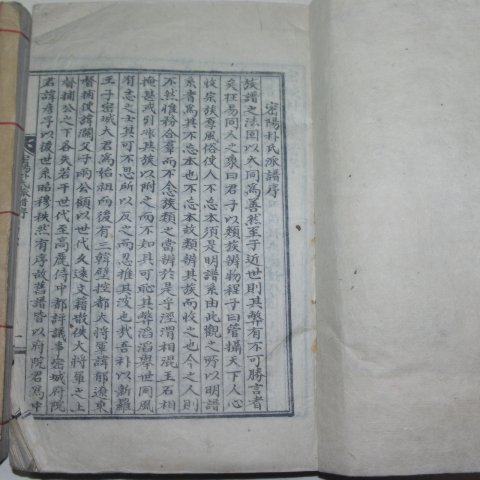 密陽朴氏派譜序
族譜之法固以大同爲善然至于近世則其弊有不可勝言者
矣在易同人之象曰君子以類族辨物程子曰管攝天下人心
收宗族厚風俗使人不忘本須是明譜系由此觀之所以明譜
系者爲其不忘本也不忘本故類辨其族而收之也今之人則
不然惟務合羣而不念族類之當辨於是乎涇渭相混玉石相
掩甚或別求其族以附之而不知其可恥其弊滔滔擧世同風
有志之士其可不思所以反之而忍推其波也哉吾朴以新羅
王子密城大君爲始祖而後有三韓壁控都大將軍諱郁遼東
督捕使諱瀾父子兩公顧以世代久遠文籍散佚大將軍之上
督捕公之下各失若干世代至高麗侍中都評議事密城府院
君諱彦孚以後世系昭穆秩然有序故舊譜皆以府院君爲中
密陽朴氏派譜序
一